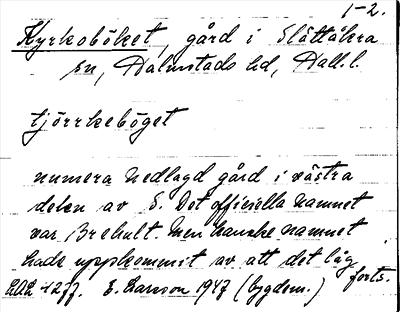 1-2.
Kyrkoböket, gård i Slättåkra
sn, Halmstads hd, Hall. l.
tjörrkeböget
numera nedlagd gård i västra
delen av S. Det officiella namnet
var Brehult. Men kanske namnet
hade uppkommit av att det låg
forts.
4277. E. Larsson 1947 (bygdem.)